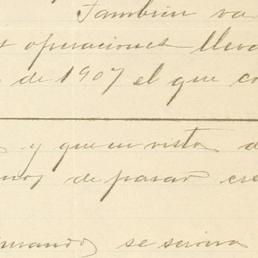 Tambien va
operaciones lleva
de 1907 el que co
y que en vista d
de pasar cre
se servira